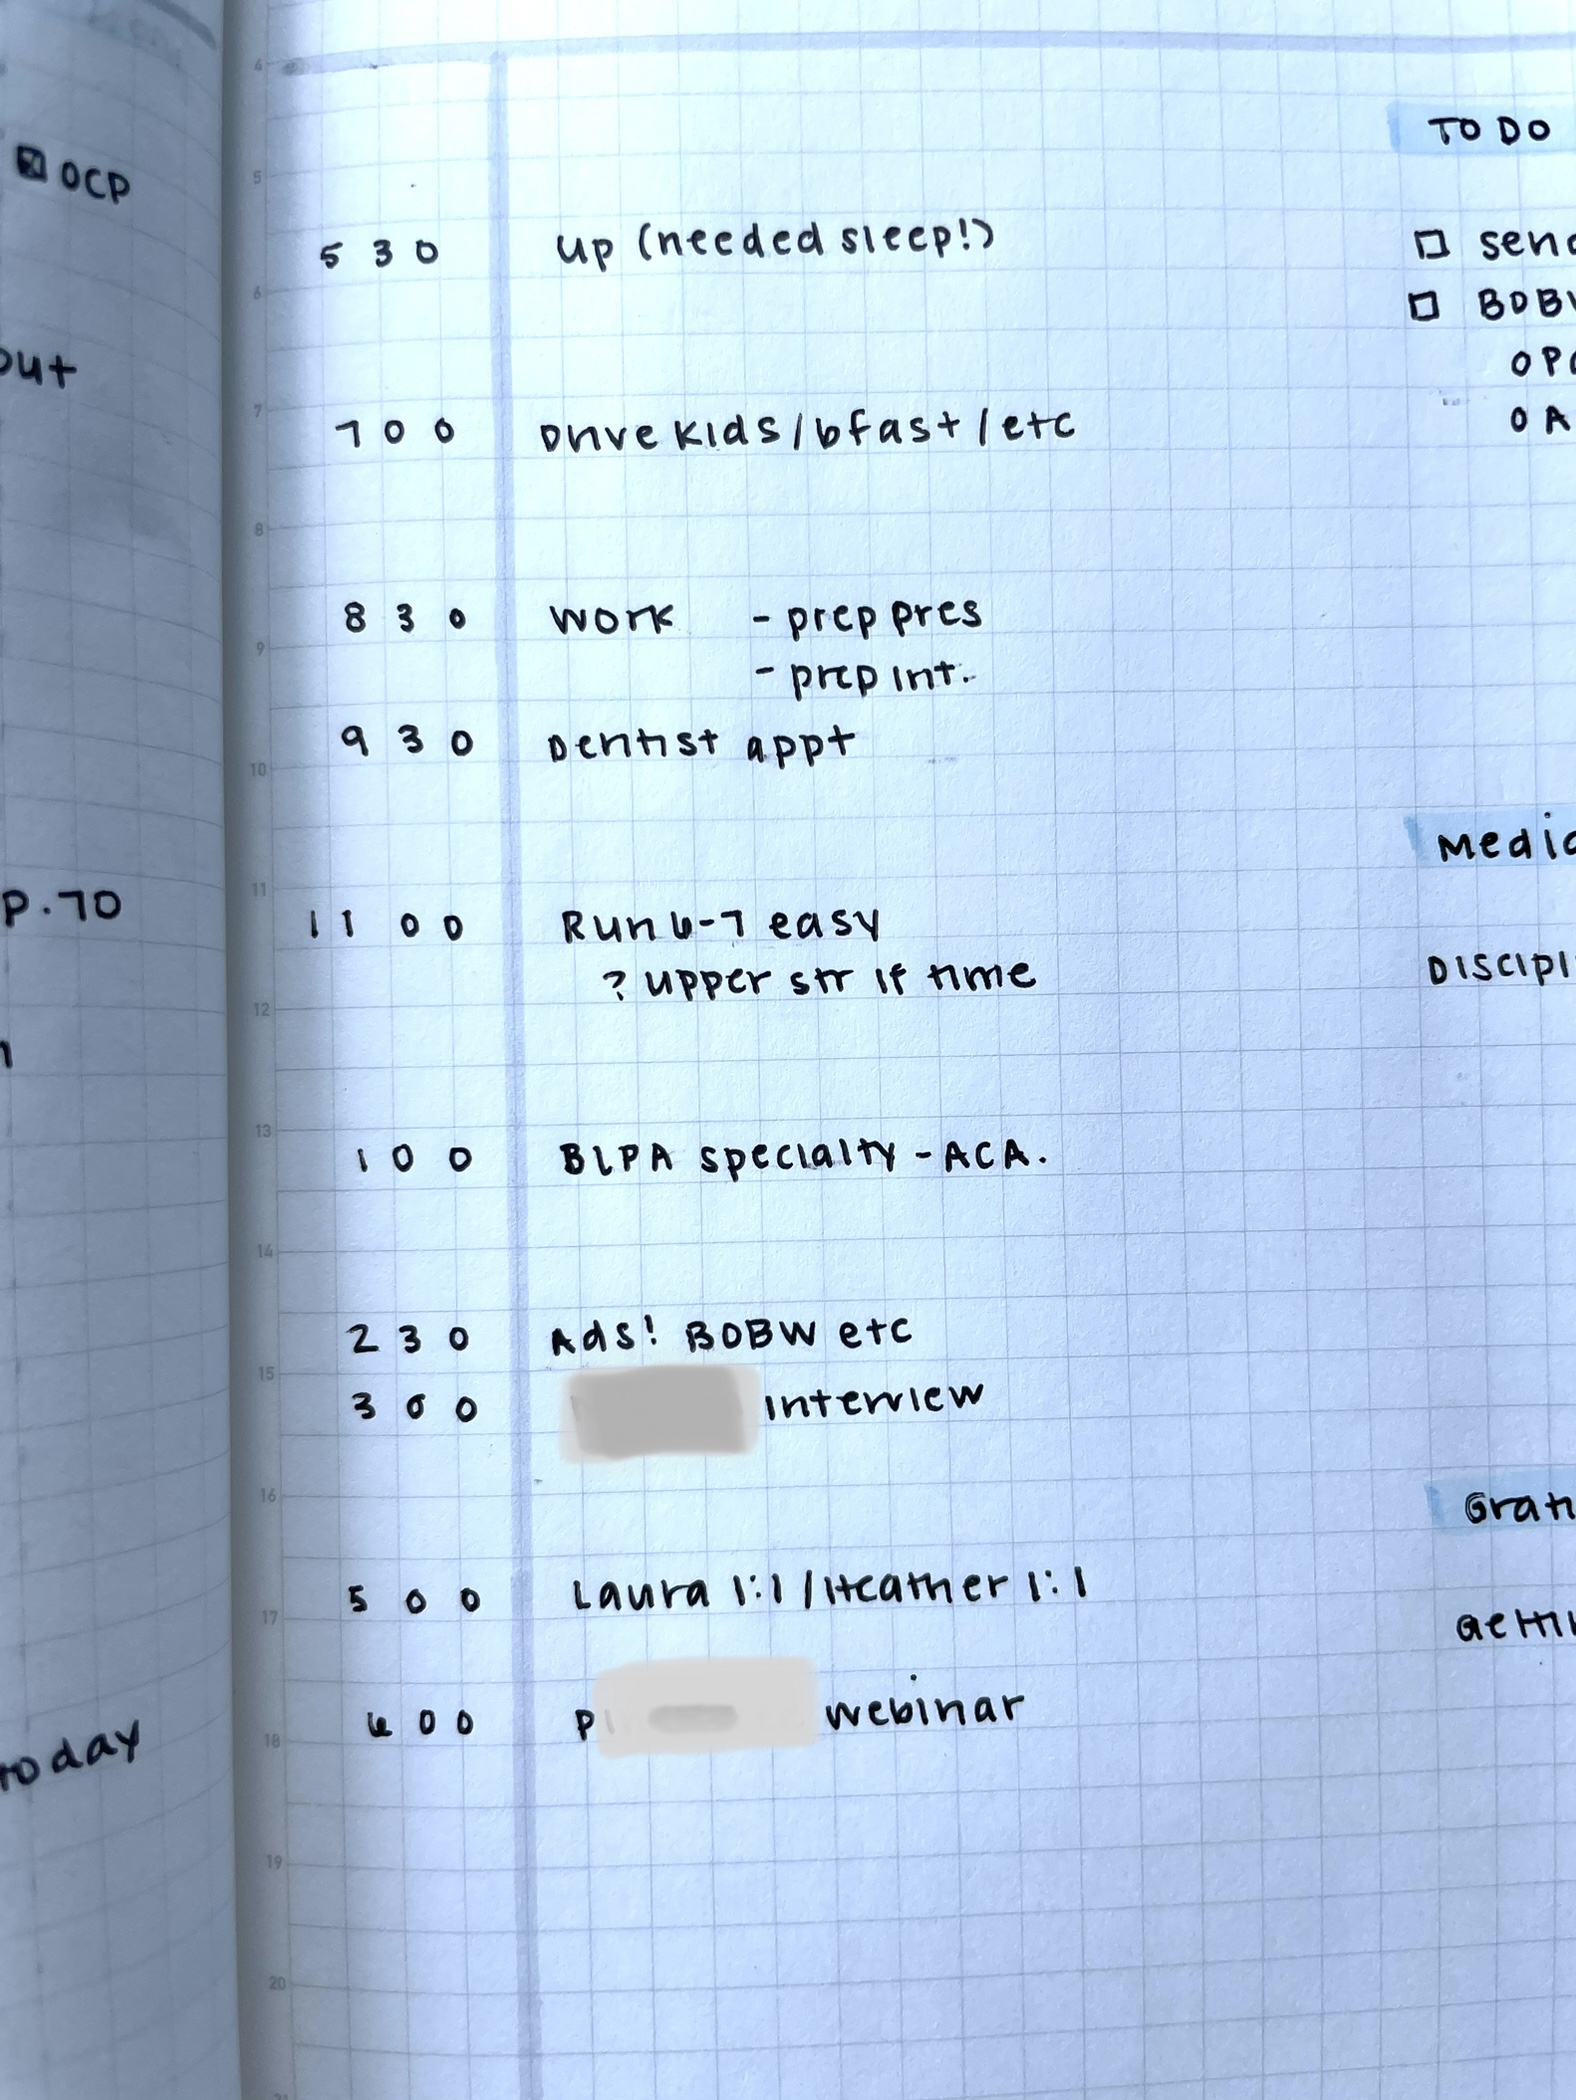 OCP
out
P.70
today
4
5
530 up (needed sleep!)
6
7
700 Drive kids/bfast/etc
8
830 Work - prep pres
9
- prep int.
930 Dentist appt
10
11
1100 Run 6-7 easy
? upper str if time
12
13
100 BLPA specialty - ACA.
14
230 Ads! BOBW etc
15
300 interview
16
500 Laura 1:1 / Heather 1:1
17
600 P webinar
18
19
20
TO DO